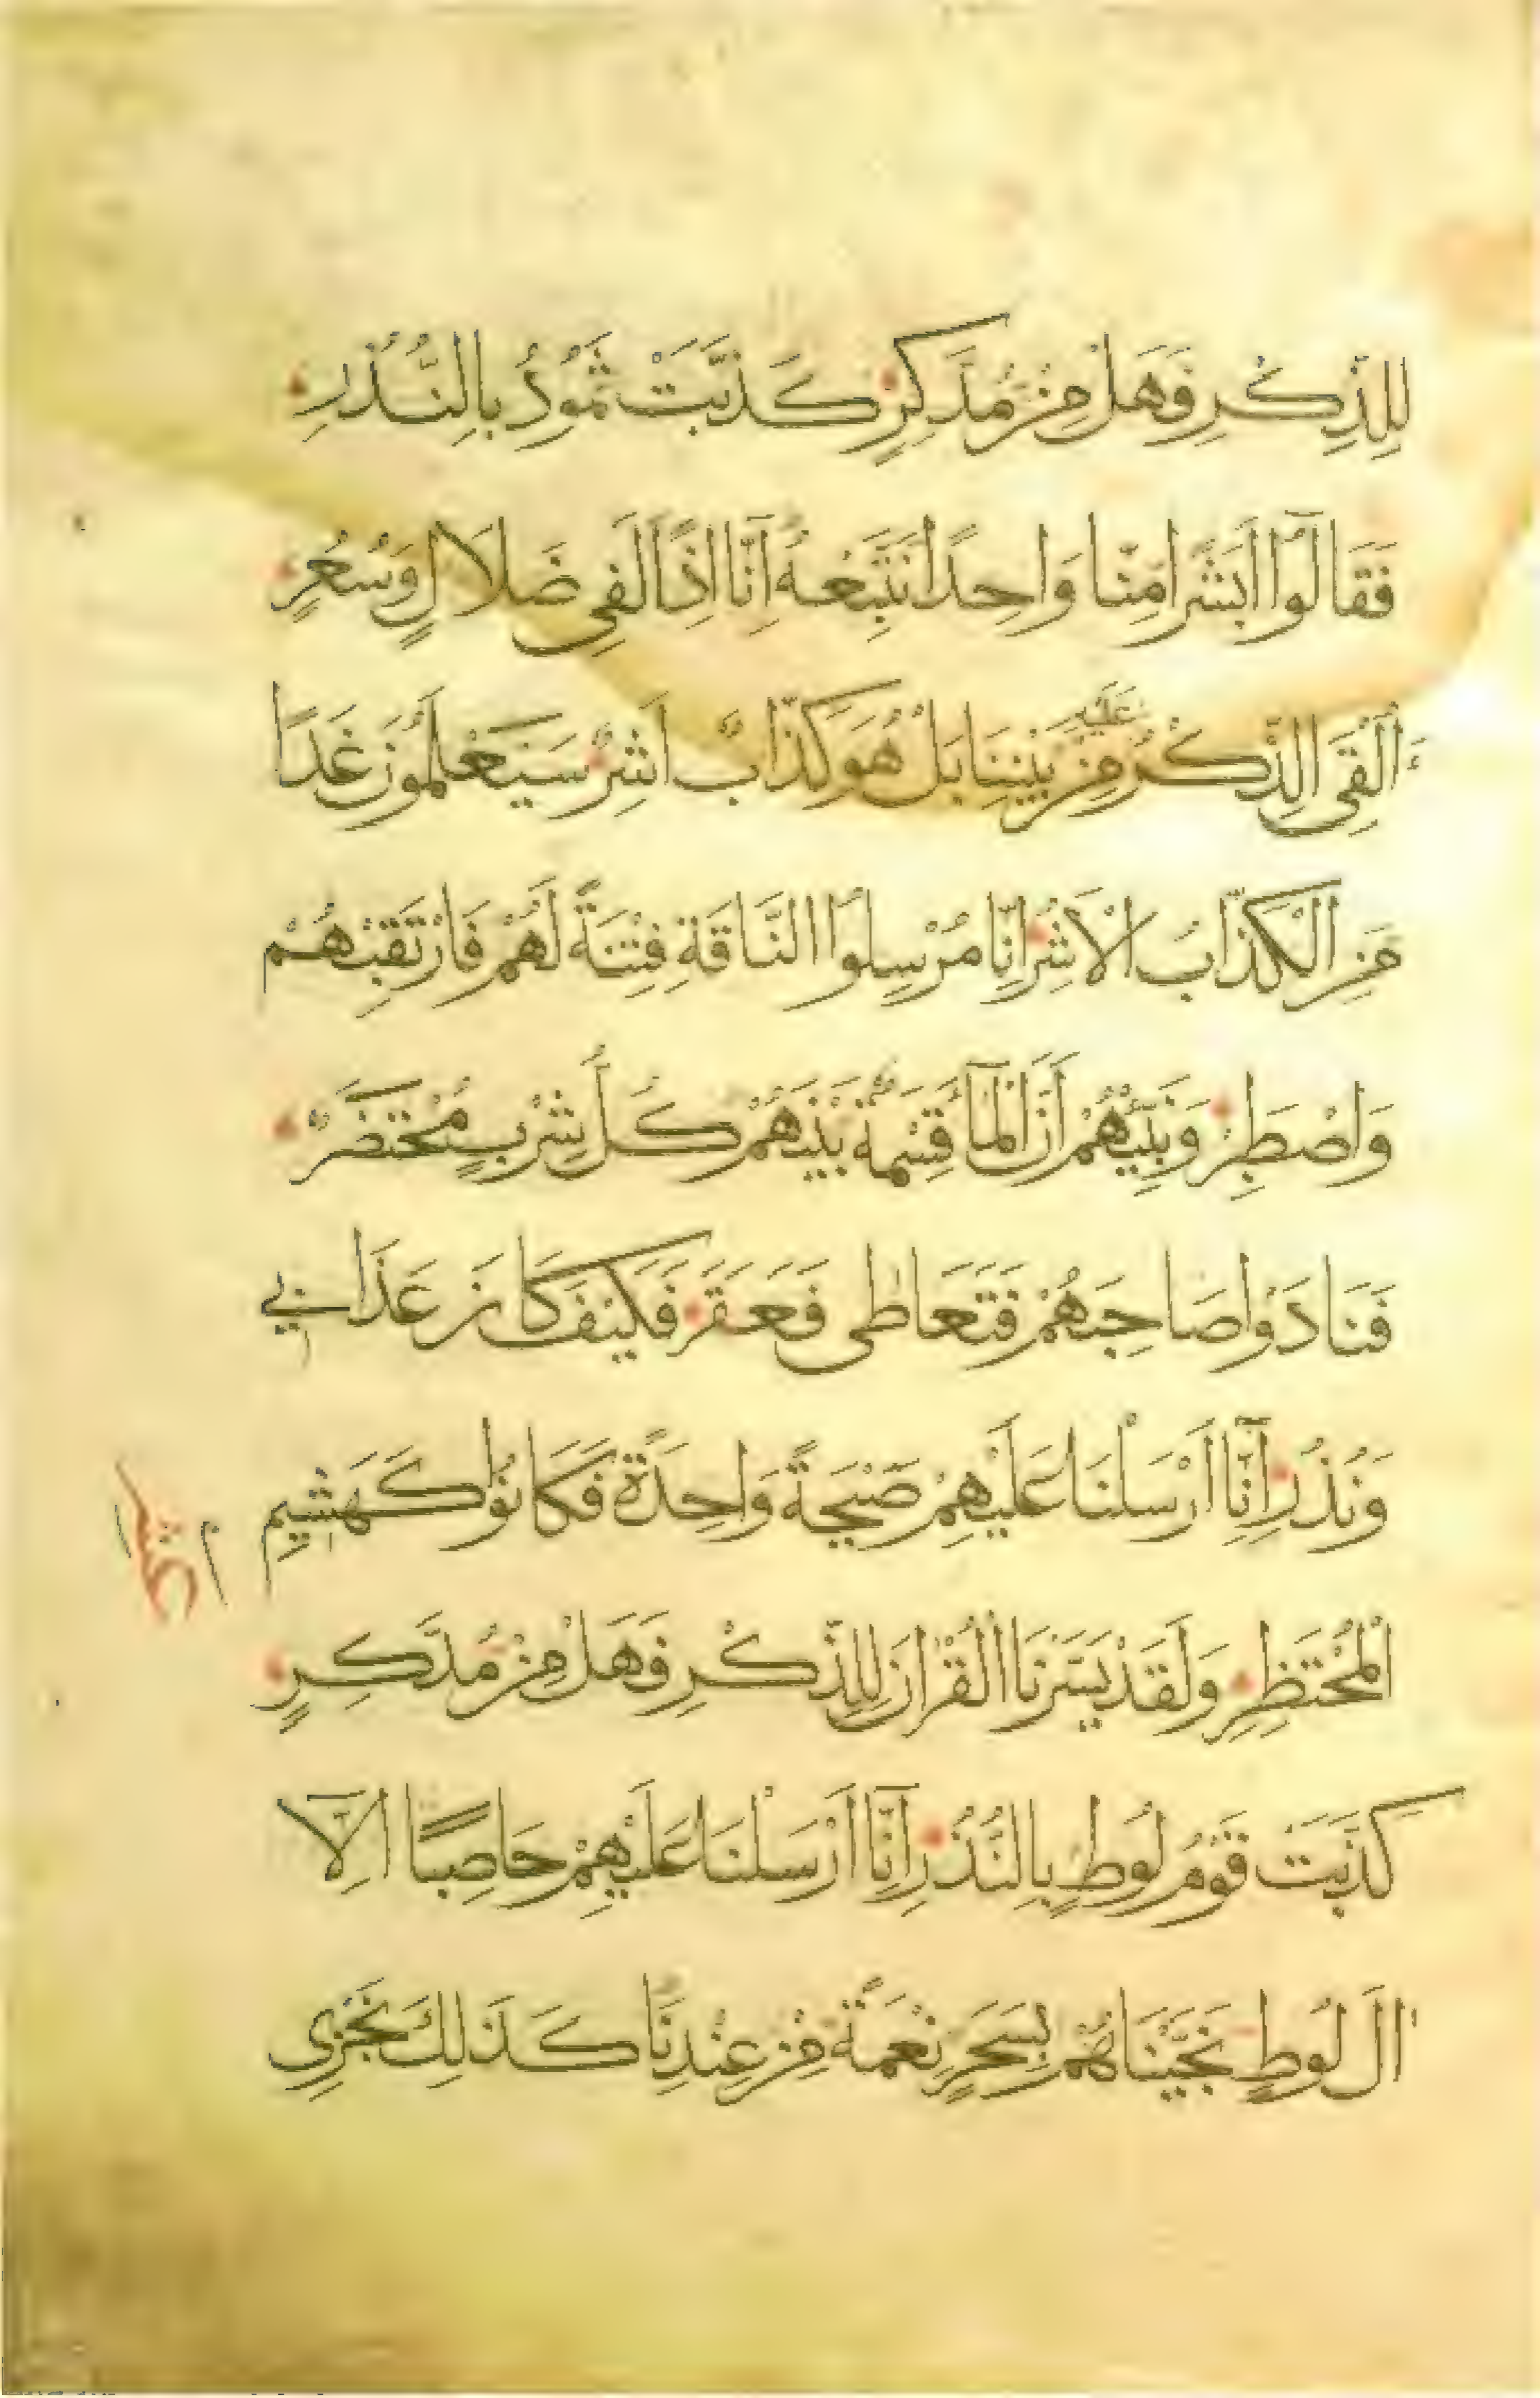 لِلذِّكْرِ فَهَلْ مِنْ مُدَّكِرٍ كَذَّبَتْ ثَمُودُ بِالنُّذُرِ
فَقَالُوا أَبَشَرًا مِنَّا وَاحِدًا نَتَّبِعُهُ اِنَّا اِذًا لَفِي ضَلَالٍ وَسُعُرٍ
ءَاُلْقِيَ الذِّكْرُ عَلَيْهِ مِنْ بَيْنِنَا بَلْ هُوَ كَذَّابٌ اَشِرٌ سَيَعْلَمُونَ غَدًا
مَنِ الْكَذَّابُ الْاَشِرُ اِنَّا مُرْسِلُوا النَّاقَةِ فِتْنَةً لَهُمْ فَارْتَقِبْهُمْ
وَاصْطَبِرْ وَنَبِّئْهُمْ اَنَّ الْمَآءَ قِسْمَةٌ بَيْنَهُمْ كُلُّ شِرْبٍ مُحْتَضَرٌ
فَنَادَوْا صَاحِبَهُمْ فَتَعَاطٰى فَعَقَرَ فَكَيْفَ كَانَ عَذَابِي
وَنُذُرِ اِنَّا اَرْسَلْنَا عَلَيْهِمْ صَيْحَةً وَاحِدَةً فَكَانُوا كَهَشِيمِ
الْمُحْتَظِرِ وَلَقَدْ يَسَّرْنَا الْقُرْاٰنَ لِلذِّكْرِ فَهَلْ مِنْ مُدَّكِرٍ
كَذَّبَتْ قَوْمُ لُوطٍ بِالنُّذُرِ اِنَّا اَرْسَلْنَا عَلَيْهِمْ حَاصِبًا اِلَّا
اٰلَ لُوطٍ نَجَّيْنَاهُمْ بِسَحَرٍ نِعْمَةً مِنْ عِنْدِنَا كَذَلِكَ نَجْزِي